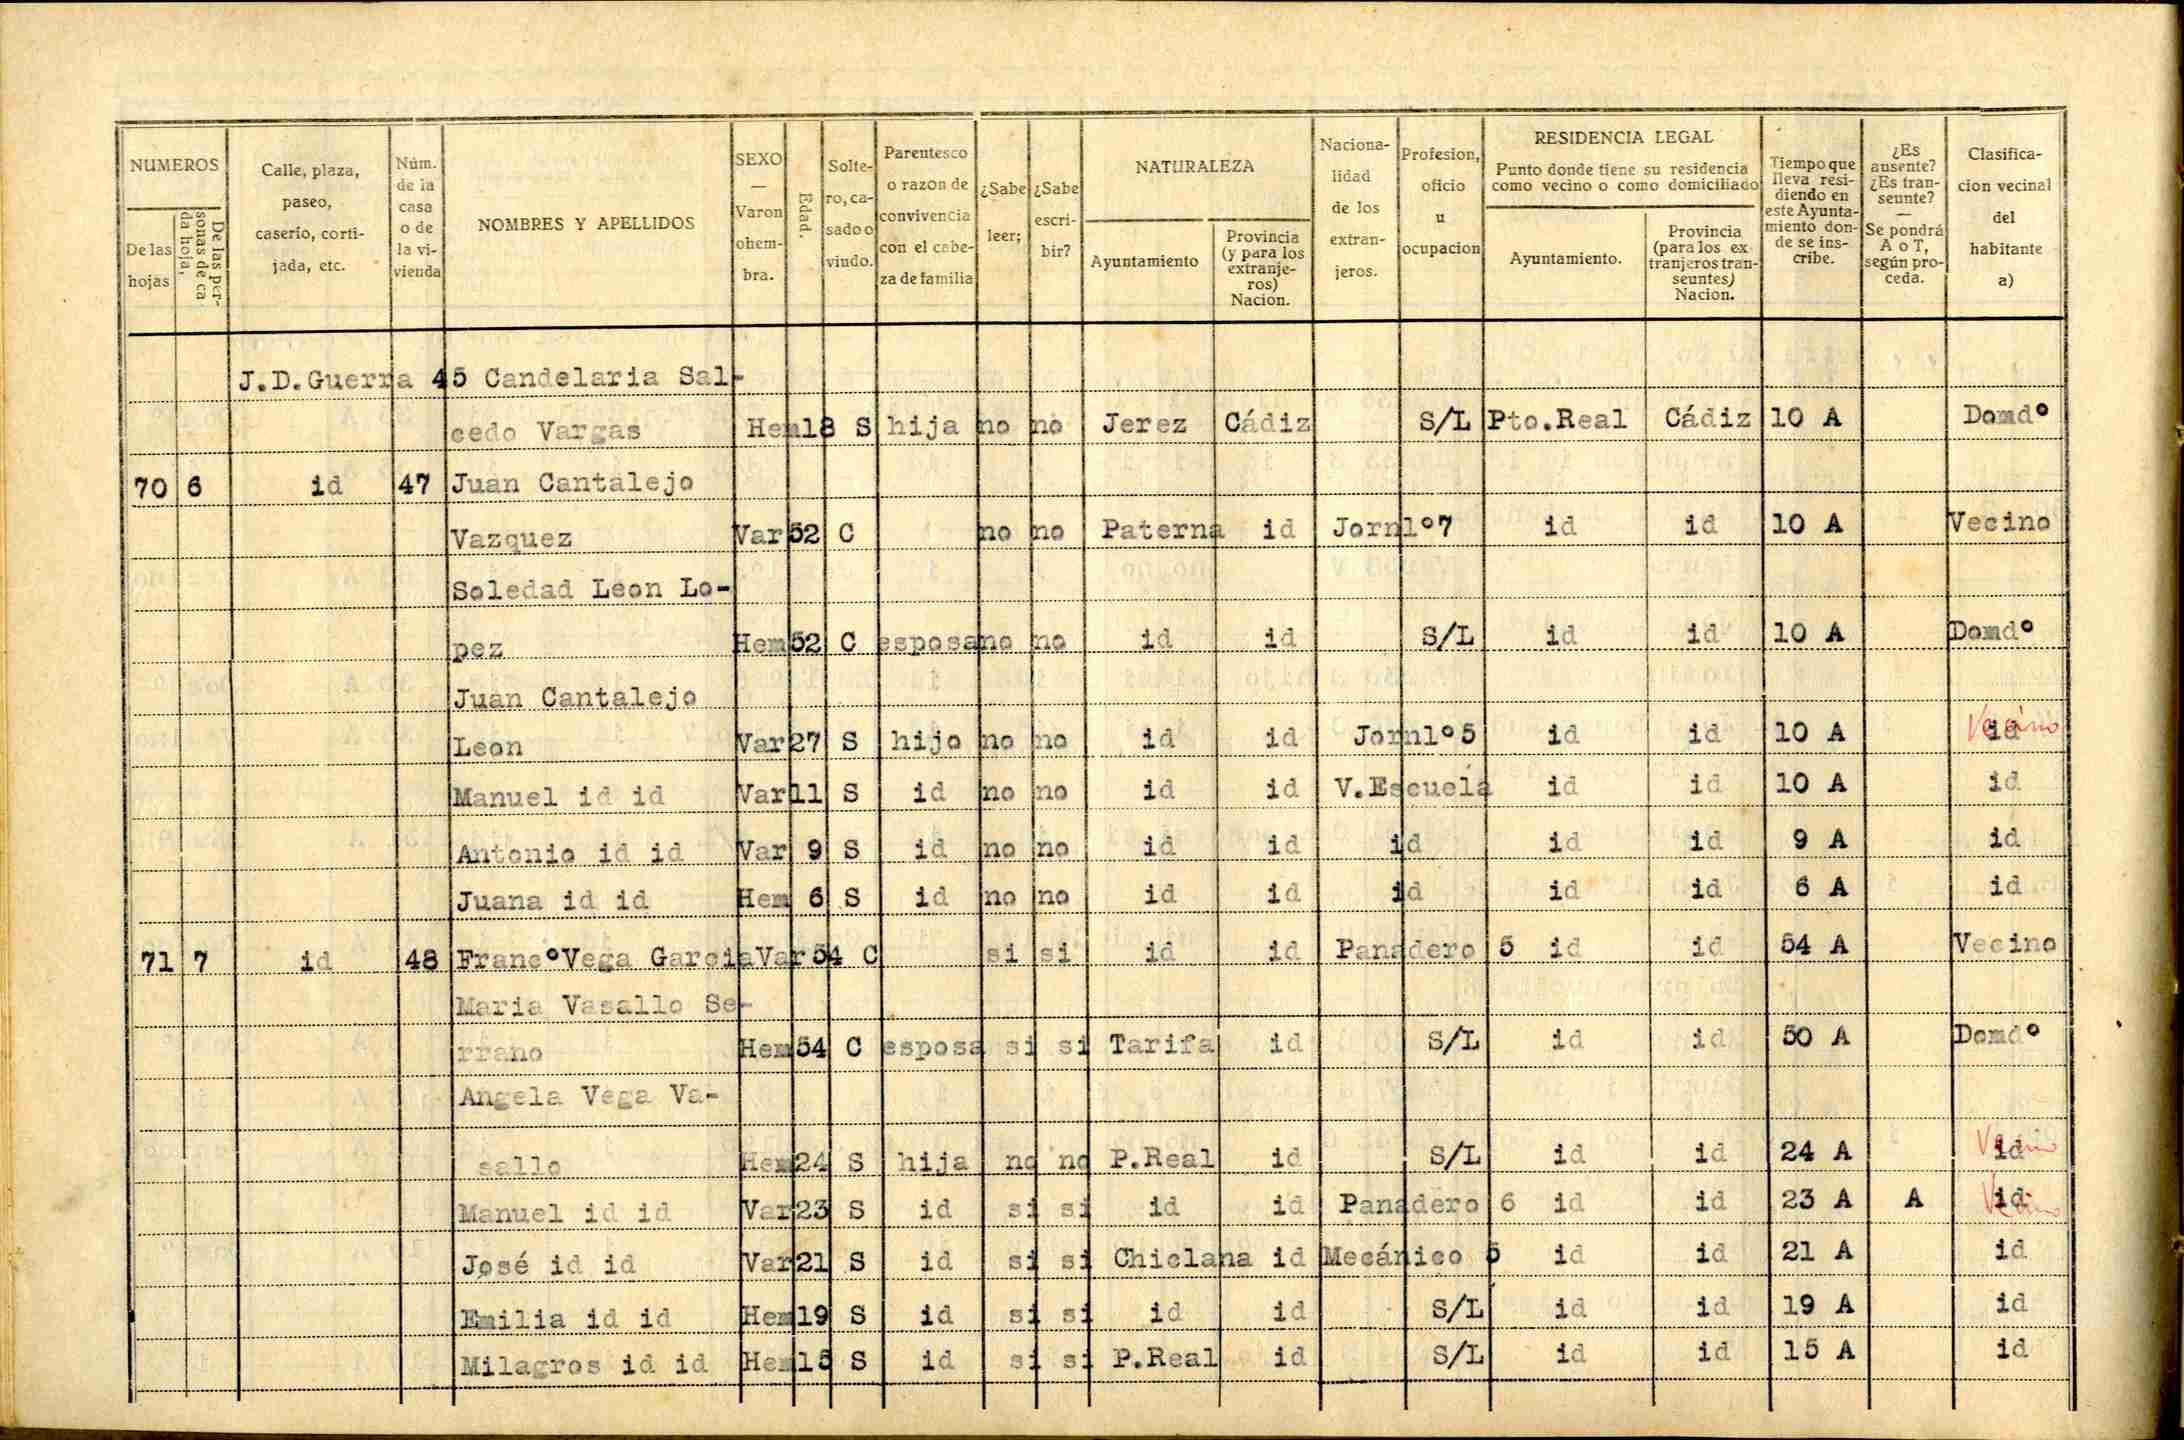 NUMEROS
De las hojas
De las personas de cada hoja.
Calle, plaza, paseo, caserio, cortijada, etc.
Núm. de la casa o de la vivienda
NOMBRES Y APELLIDOS
SEXO — Varon ohembra.
Edad.
Soltero, casado o viudo.
Parentesco o razon de convivencia con el cabeza de familia
¿Sabe leer;
¿Sabe escribir?
NATURALEZA
Ayuntamiento
Provincia (y para los extranjeros) Nacion.
Nacionalidad de los extranjeros.
Profesion, oficio u ocupacion
RESIDENCIA LEGAL
Punto donde tiene su residencia como vecino o como domiciliado
Ayuntamiento.
Provincia (para los extranjeros transeuntes) Nacion.
Tiempo que lleva residiendo en este Ayuntamiento donde se inscribe.
¿Es ausente? ¿Es transeunte? — Se pondrá A o T, según proceda.
Clasificacion vecinal del habitante a)
J.D.Guerra 45 Candelaria Sal-
cedo Vargas Hem 18 S hija no no Jerez Cádiz S/L Pto.Real Cádiz 10 A Domdº
70 6 id 47 Juan Cantalejo
Vazquez Var 52 C no no Paterna id Jornlº7 id id 10 A Vecino
Soledad Leon Lo-
pez Hem 52 C esposa no no id id S/L id id 10 A Domdº
Juan Cantalejo
Leon Var 27 S hijo no no id id Jornlº5 id id 10 A id Vecino
Manuel id id Var 11 S id no no id id V.Escuela id id 10 A id
Antonio id id Var 9 S id no no id id id id id 9 A id
Juana id id Hem 6 S id no no id id id id id 6 A id
71 7 id 48 FrancºVega Garcia Var 54 C si si id id Panadero 5 id id 54 A Vecino
Maria Vasallo Se-
rrano Hem 54 C esposa si si Tarifa id S/L id id 50 A Domdº
Angela Vega Va-
sallo Hem 24 S hija no no P.Real id S/L id id 24 A id Vecino
Manuel id id Var 23 S id si si id id Panadero 6 id id 23 A A id Vecino
José id id Var 21 S id si si Chiclana id Mecánico 5 id id 21 A id
Emilia id id Hem 19 S id si si id id S/L id id 19 A id
Milagros id id Hem 15 S id si si P.Real id S/L id id 15 A id